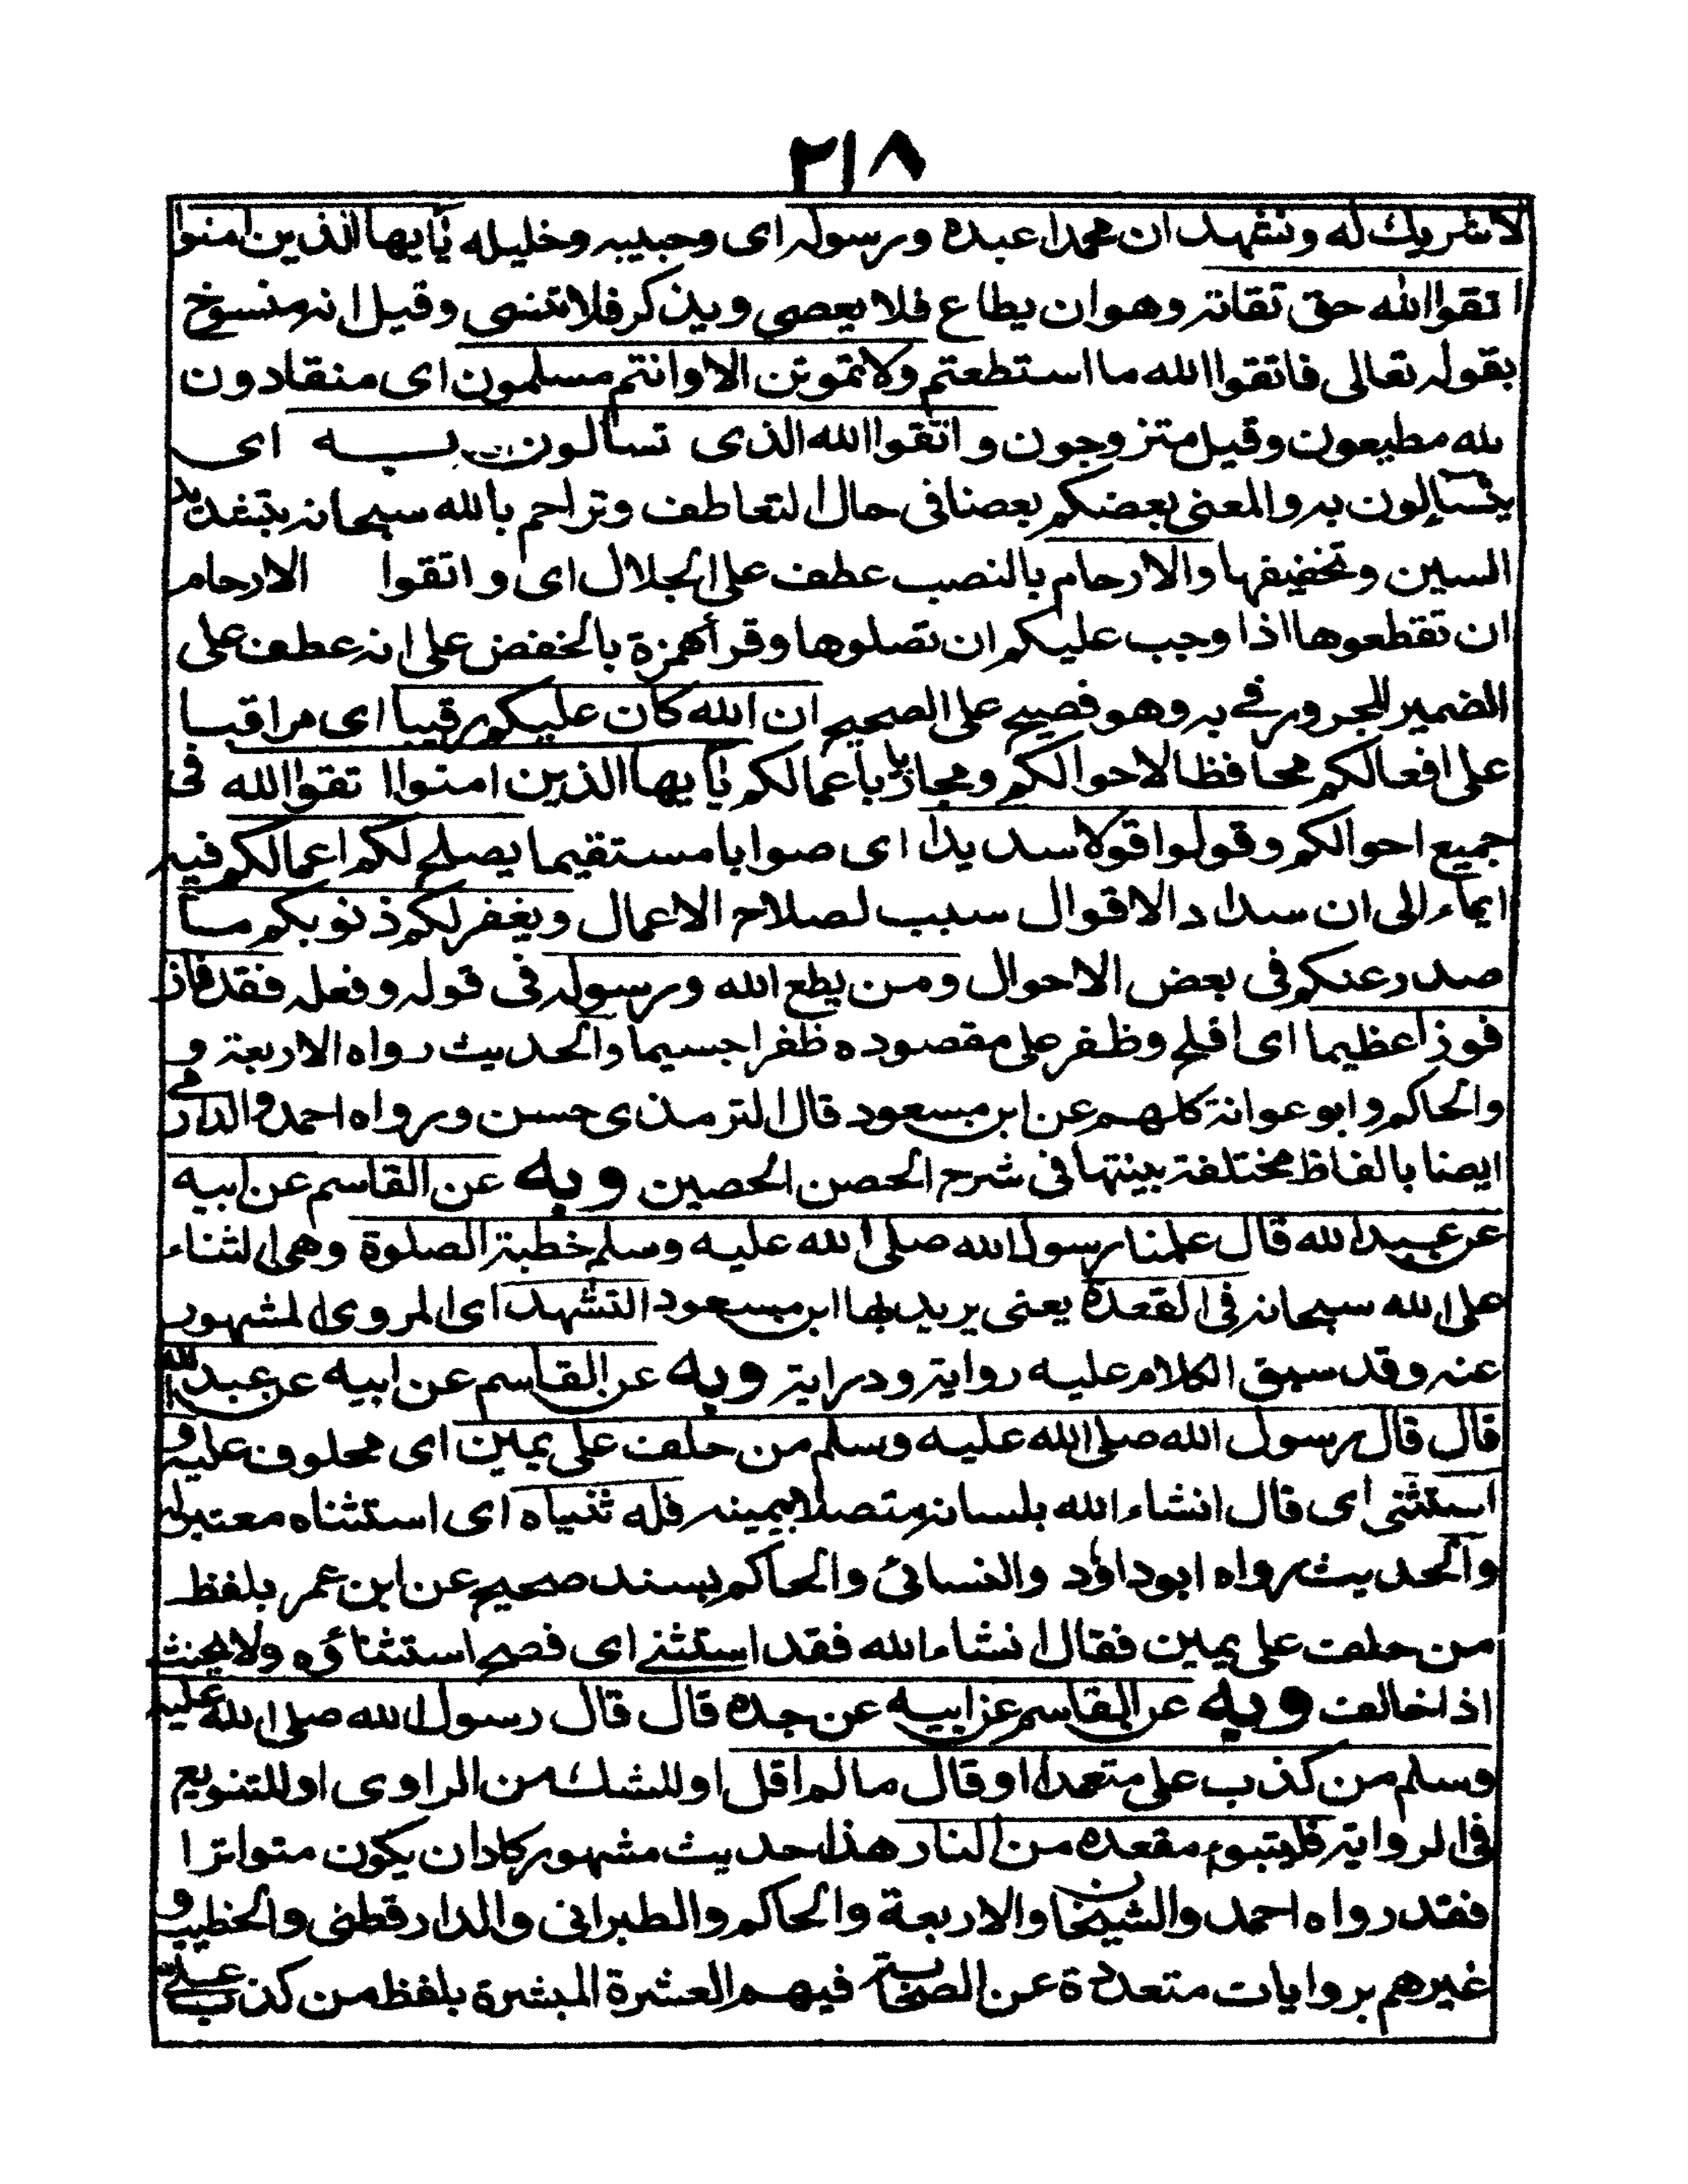 ٢١٨
لا شريك له ونشهد ان محمدا عبده ورسوله اى وحبيبه وخليله يٰايها الذين امنوا
اتقوا الله حق تقاته وهو ان يطاع فلا يعصى ويذكر فلا تنسى وقيل انه منسوخ
بقوله تعالى فاتقوا الله ما استطعتم ولا تموتن الا وانتم مسلمون اى منقادون
لله مطيعون وقيل متزوجون واتقوا الله الذى تسألون به اى
يتسالون به والمعنى بعضكم بعضا فى حال التعاطف وتراحم بالله سبحانه بتشديد
السين وتخفيفها والارحام بالنصب عطف على الجلال اى واتقوا الارحام
ان تقطعوها اذا وجب عليكم ان تصلوها وقرأ همزة بالخفض على انه عطف على
الضمير المجرور فى به وهو فصيح على الصحيح ان الله كان عليكم رقيبا اى مراقبا
على افعالكم محافظا لاحوالكم ومجازيا باعمالكم يٰايها الذين امنوا اتقوا الله فى
جميع احوالكم وقولوا قولا سديدا اى صوابا مستقيما يصلح لكم اعمالكم فيه
ايماء الى ان سداد الاقوال سبب لصلاح الاعمال ويغفر لكم ذنوبكم مسا
صدر عنكم فى بعض الاحوال ومن يطع الله ورسوله فى قوله وفعله فقد فاز
فوزا عظيما اى افلح وظفر على مقصوده ظفرا جسيما والحديث رواه الاربعة و
والحاكم وابو عوانة كلهم عن ابن مسعود قال الترمذى حسن ورواه احمد والدارمى
ايضا بالفاظ مختلفة بينتها فى شرح الحصن الحصين وبه عن القاسم عن ابيه
عن عبد الله قال علمنا رسول الله صلى الله عليه وسلم خطبة الصلوة وهى الثناء
على الله سبحانه فى القعدة يعنى يريد بها ابن مسعود التشهد اى المروى المشهور
عنه وقد سبق الكلام عليه رواية ودراية وبه عن القاسم عن ابيه عن عبد الله
قال قال رسول الله صلى الله عليه وسلم من حلف على يمين اى محلوف عليه و
استثنى اى قال انشاء الله بلسانه متصلا بيمينه فله ثنياه اى استثناه معتبر له
والحديث رواه ابو داؤد والنسائى والحاكم بسند صحيح عن ابن عمر بلفظ
من حلف على يمين فقال انشاء الله فقد استثنى اى فصح استثناؤه ولا يحنث
اذا خالف وبه عن القاسم عن ابيه عن جده قال قال رسول الله صلى الله عليه
وسلم من كذب على متعمدا او قال ما لم اقل او للشك من الراوى او للتنويع
فى الرواية فليتبوء مقعده من النار هذا حديث مشهور كاد ان يكون متواترا
فقد رواه احمد والشيخان والاربعة والحاكم والطبرانى والدار قطنى والخطيب و
غيرهم بروايات متعددة عن الصحابة فيهم العشرة المبشرة بلفظ من كذب على